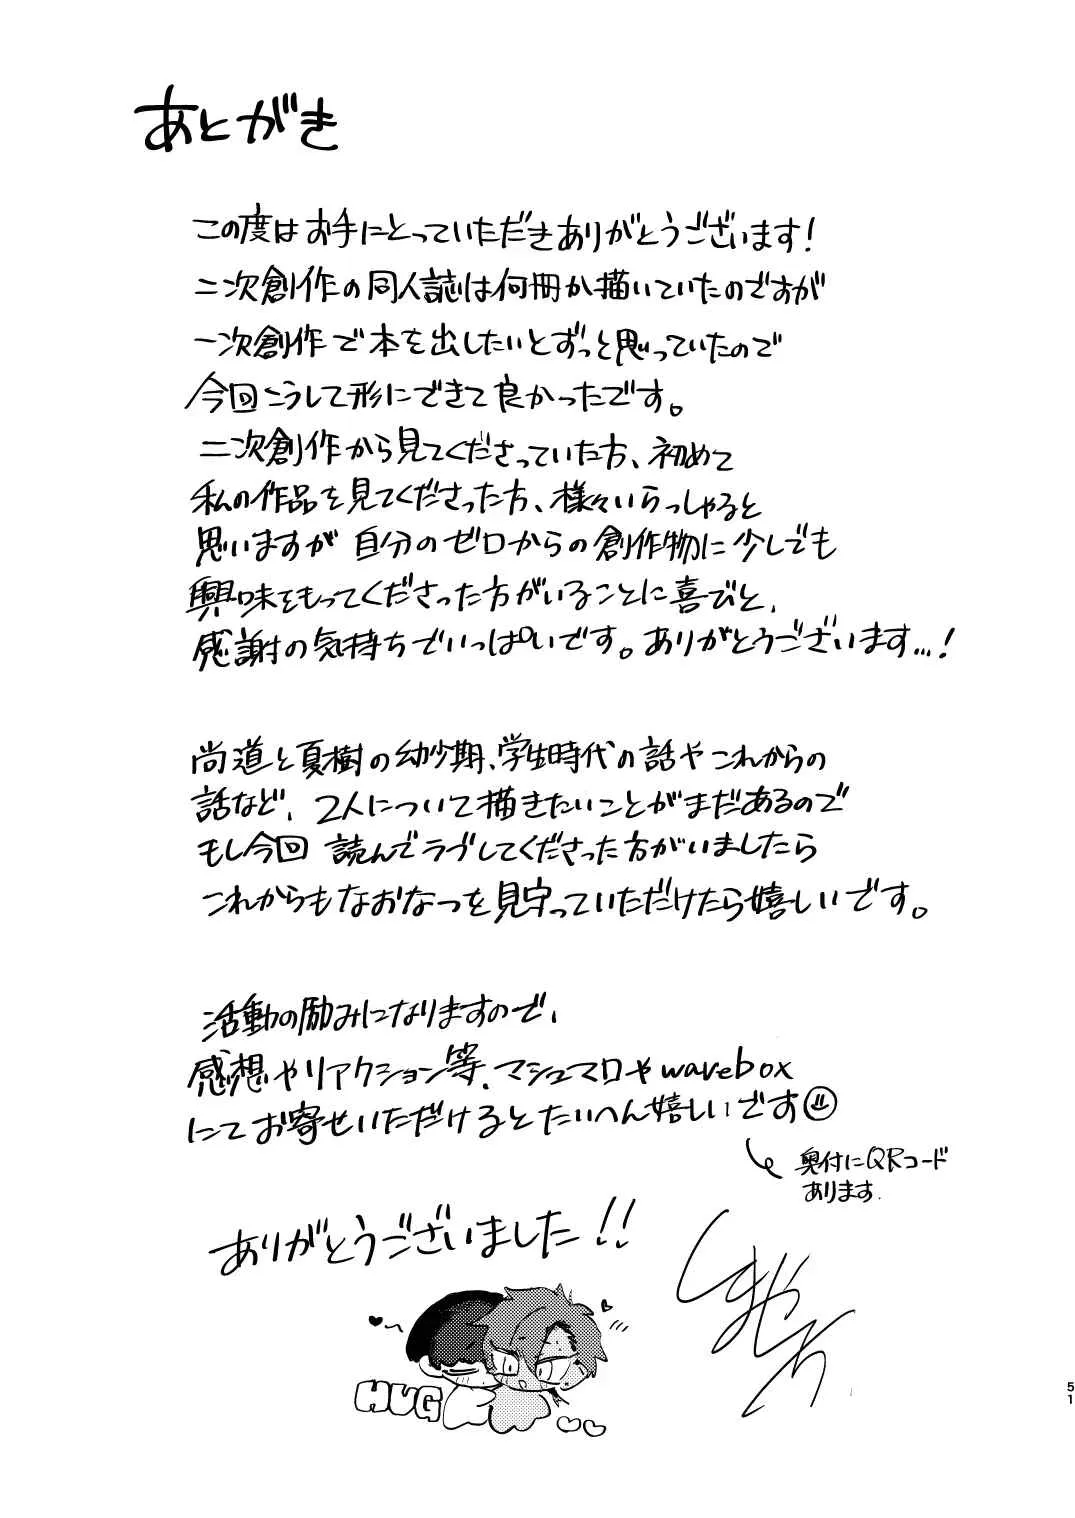 あとがき
この度はお手にとっていただきありがとうございます!
二次創作の同人誌は何冊か描いていたのですが
一次創作で本を出したいとずっと思っていたので
今回こうして形にできて良かったです。
二次創作から見てくださっていた方、初めて
私の作品を見てくださった方、様々いらっしゃると
思いますが 自分のゼロからの創作物に少しでも
興味をもってくださった方がいることに喜びと、
感謝の気持ちでいっぱいです。ありがとうございます…!
尚道と夏樹の幼少期、学生時代の話やこれからの
話など、2人について描きたいことがまだあるので
もし今回 読んでラブしてくださった方がいましたら
これからもなおなつを見守っていただけたら嬉しいです。
活動の励みになりますので、
感想やリアクション等、マシュマロやwavebox
にてお寄せいただけるとたいへん嬉しいです
奥付にQRコード
あります.
ありがとうございました!!
HUG
51